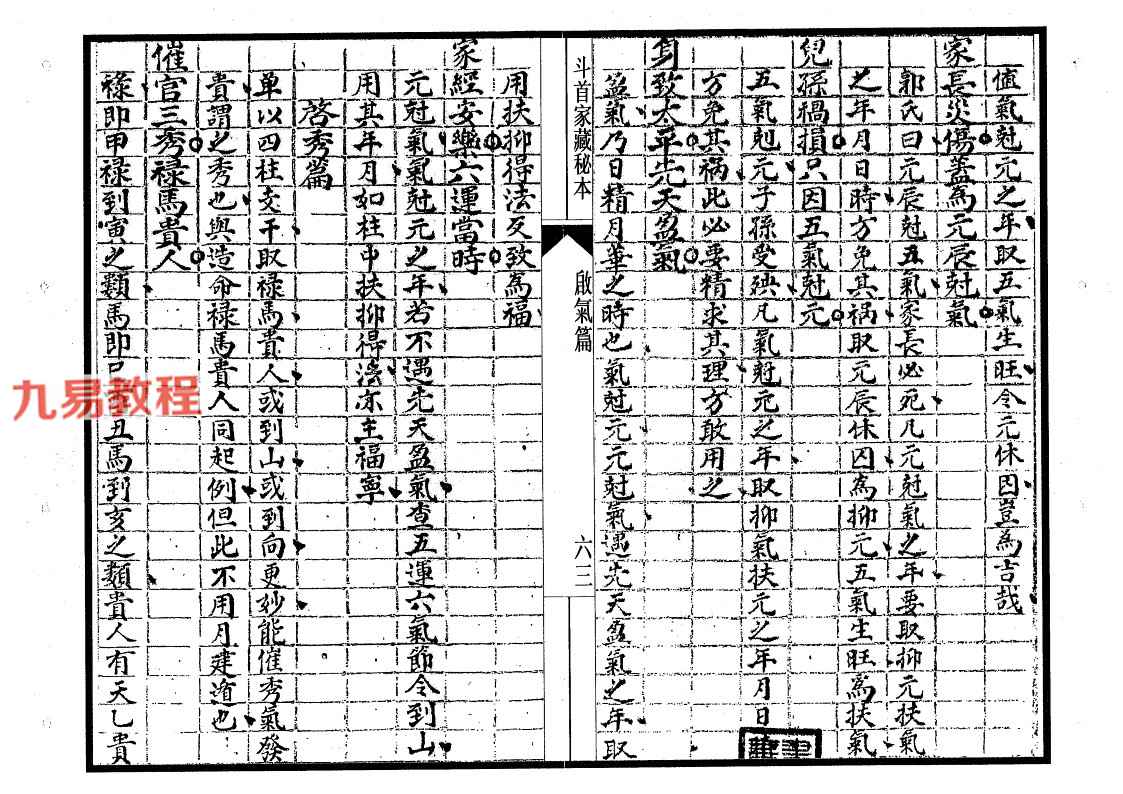 值氣尅元之年取五氣生旺令元休囚豈為吉哉
家長災傷蓋為元辰尅氣
郭氏曰元辰尅五氣家長必死凡元尅氣之年要取抑元扶氣
之年月日時方免其禍取元辰休囚為抑元五氣生旺為扶氣
兒孫禍損只因五氣尅元
五氣尅元子孫受殃凡氣尅元之年取抑氣扶元之年月日
方免其禍此必要精求其理方敢用之
身致太平先天盈氣
盈氣乃日精月華之時也氣尅元元尅氣遇先天盈氣之年取
斗首家藏秘本
啟氣篇
六三
用扶抑得法反致為福
家經安樂六運當時
元尅氣氣尅元之年若不遇先天盈氣查五運六氣節令到山
用其年月如柱中扶抑得法亦主福寧
啓秀篇
单以四柱支干取禄馬貴人或到山或到向更妙能催秀氣發
貴謂之秀也與造命禄馬貴人同起例但此不用月建遁也
催官三秀禄馬貴人
禄即甲禄到寅之類馬即巳酉丑馬到亥之類貴人有天乙貴
九易教程